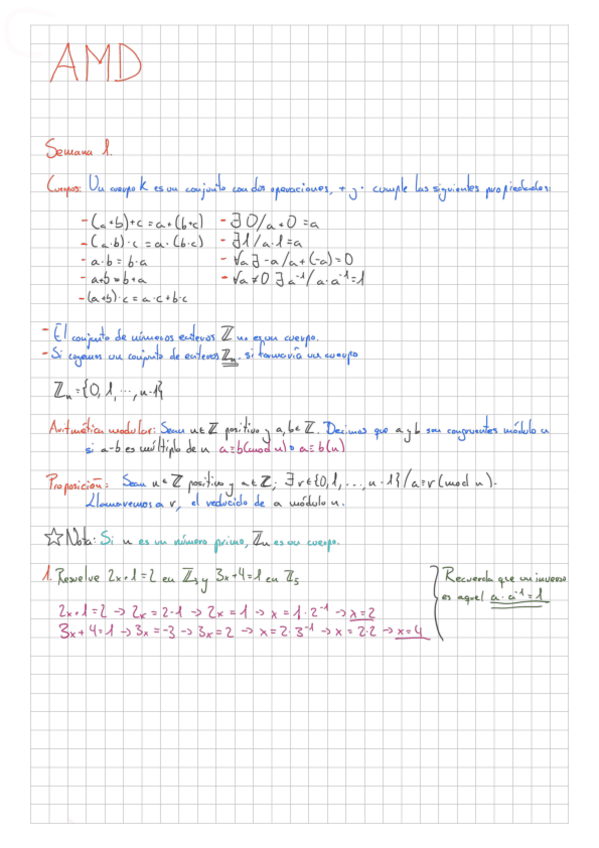 AMD
Semana 1.
Cuerpos: Un cuerpo K es un conjunto con dos operaciones, + y · cumple las siguientes propiedades:
- (a+b)+c = a+(b+c) - ∃ 0/a+0=a
- (a·b)·c = a·(b·c) - ∃ 1/a·1=a
- a·b = b·a - ∀a ∃ -a/a+(-a)=0
- a+b = b+a - ∀a≠0 ∃ a⁻¹/a·a⁻¹=1
- (a+b)·c = a·c+b·c
- El conjunto de números enteros ℤ no es un cuerpo.
- Si cogemos un conjunto de enteros ℤn, si formaría un cuerpo
ℤn = {0, 1, ..., n-1}
Aritmética modular: Sean n∈ℤ positivo y a,b∈ℤ. Decimos que a y b son congruentes módulo n
si a-b es múltiplo de n a≡b(mod n) o a≡b(n)
Proposición: Sean n∈ℤ positivo y a∈ℤ; ∃ r∈{0,1,...,n-1}/a≡r(mod n).
Llamaremos a r, el reducido de a módulo n.
☆Nota: Si n es un número primo, ℤn es un cuerpo.
1. Resuelve 2x+1=2 en ℤ₃ y 3x+4=1 en ℤ₅
2x+1=2 → 2x=2-1 → 2x=1 → x=1·2⁻¹ → x=2
3x+4=1 → 3x=-3 → 3x=2 → x=2·3⁻¹ → x=2·2 → x=4
Recuerda que un inverso
es aquel a·a⁻¹=1